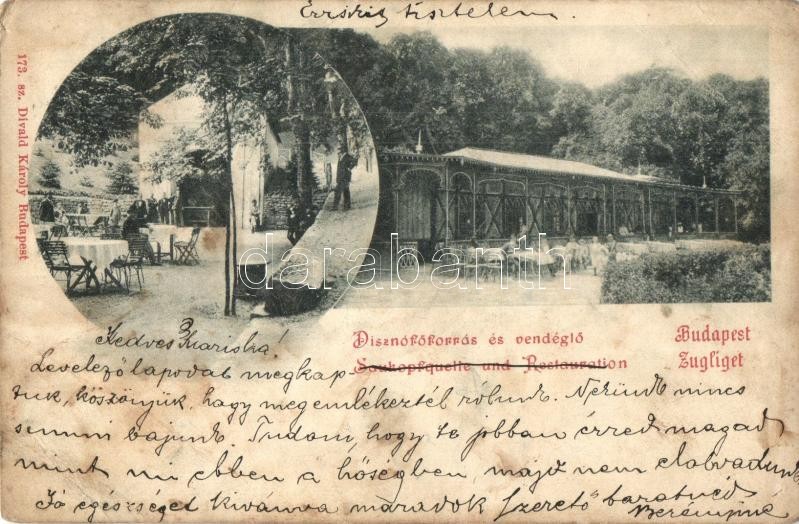 Ervikét tisztelem.
173. sz. Divald Károly Budapest
darabanth
Disznófőforrás és vendéglő
Budapest
Saukopfquelle und Restauration
Zugliget
Kedves Mariska!
Levelező lapodat megkap-
tuk, köszönjük, hogy megemlékeztél rólunk. Nekünk nincs
semmi bajunk. Tudom, hogy te jobban érzed magad
mint mi ebben a hőségben, majd nem elolvadunk
Jó egészséget kivánva maradok szerető barátnéd
Berényiné